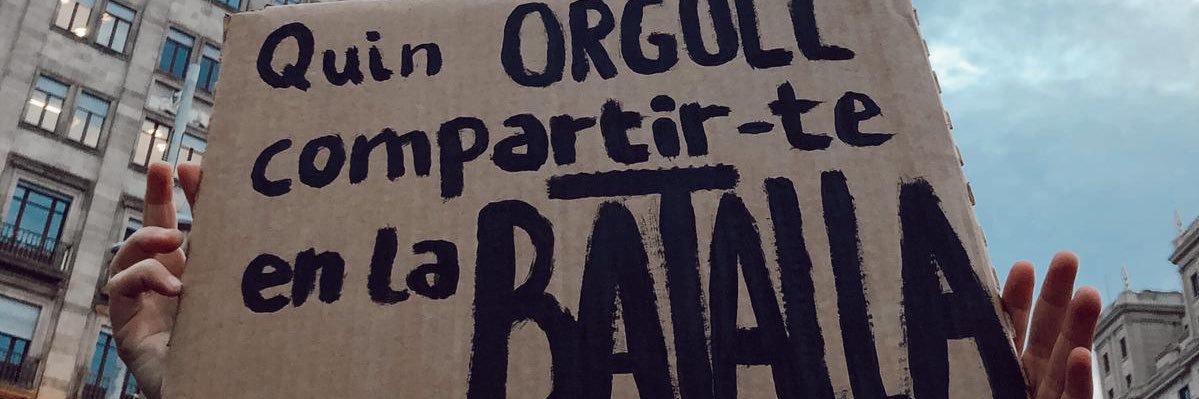 Quin ORGULL
compartir-te
en la BATALLA